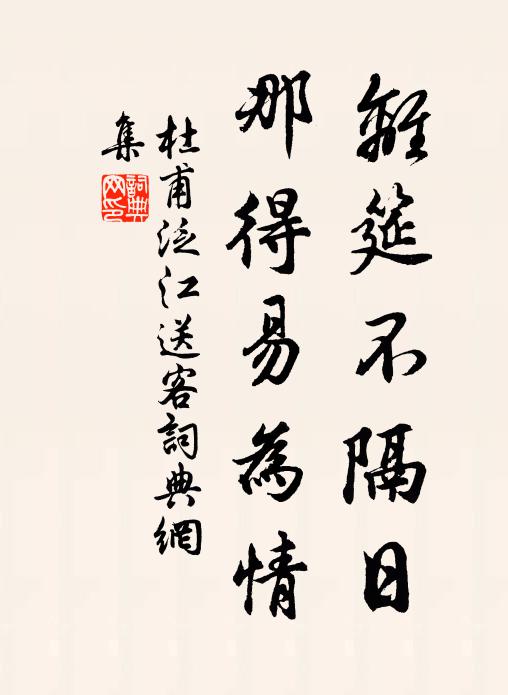 離筵不隔日
那得易為情
杜甫泛江送客詞典網
集
詞典
网印